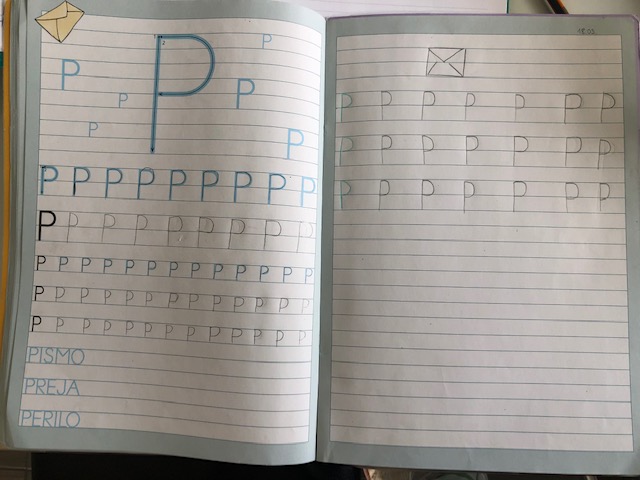 P
P
P P
P
P
P
P P P P P P P P P
P P P P P P P P P
P P P P P P P P P P P P P
P P P P P P P P P P P P P
P P P P P P P P P P P P P
PISMO
PREJA
PERILO
P P P P P P P
P P P P P P P
P P P P P P P